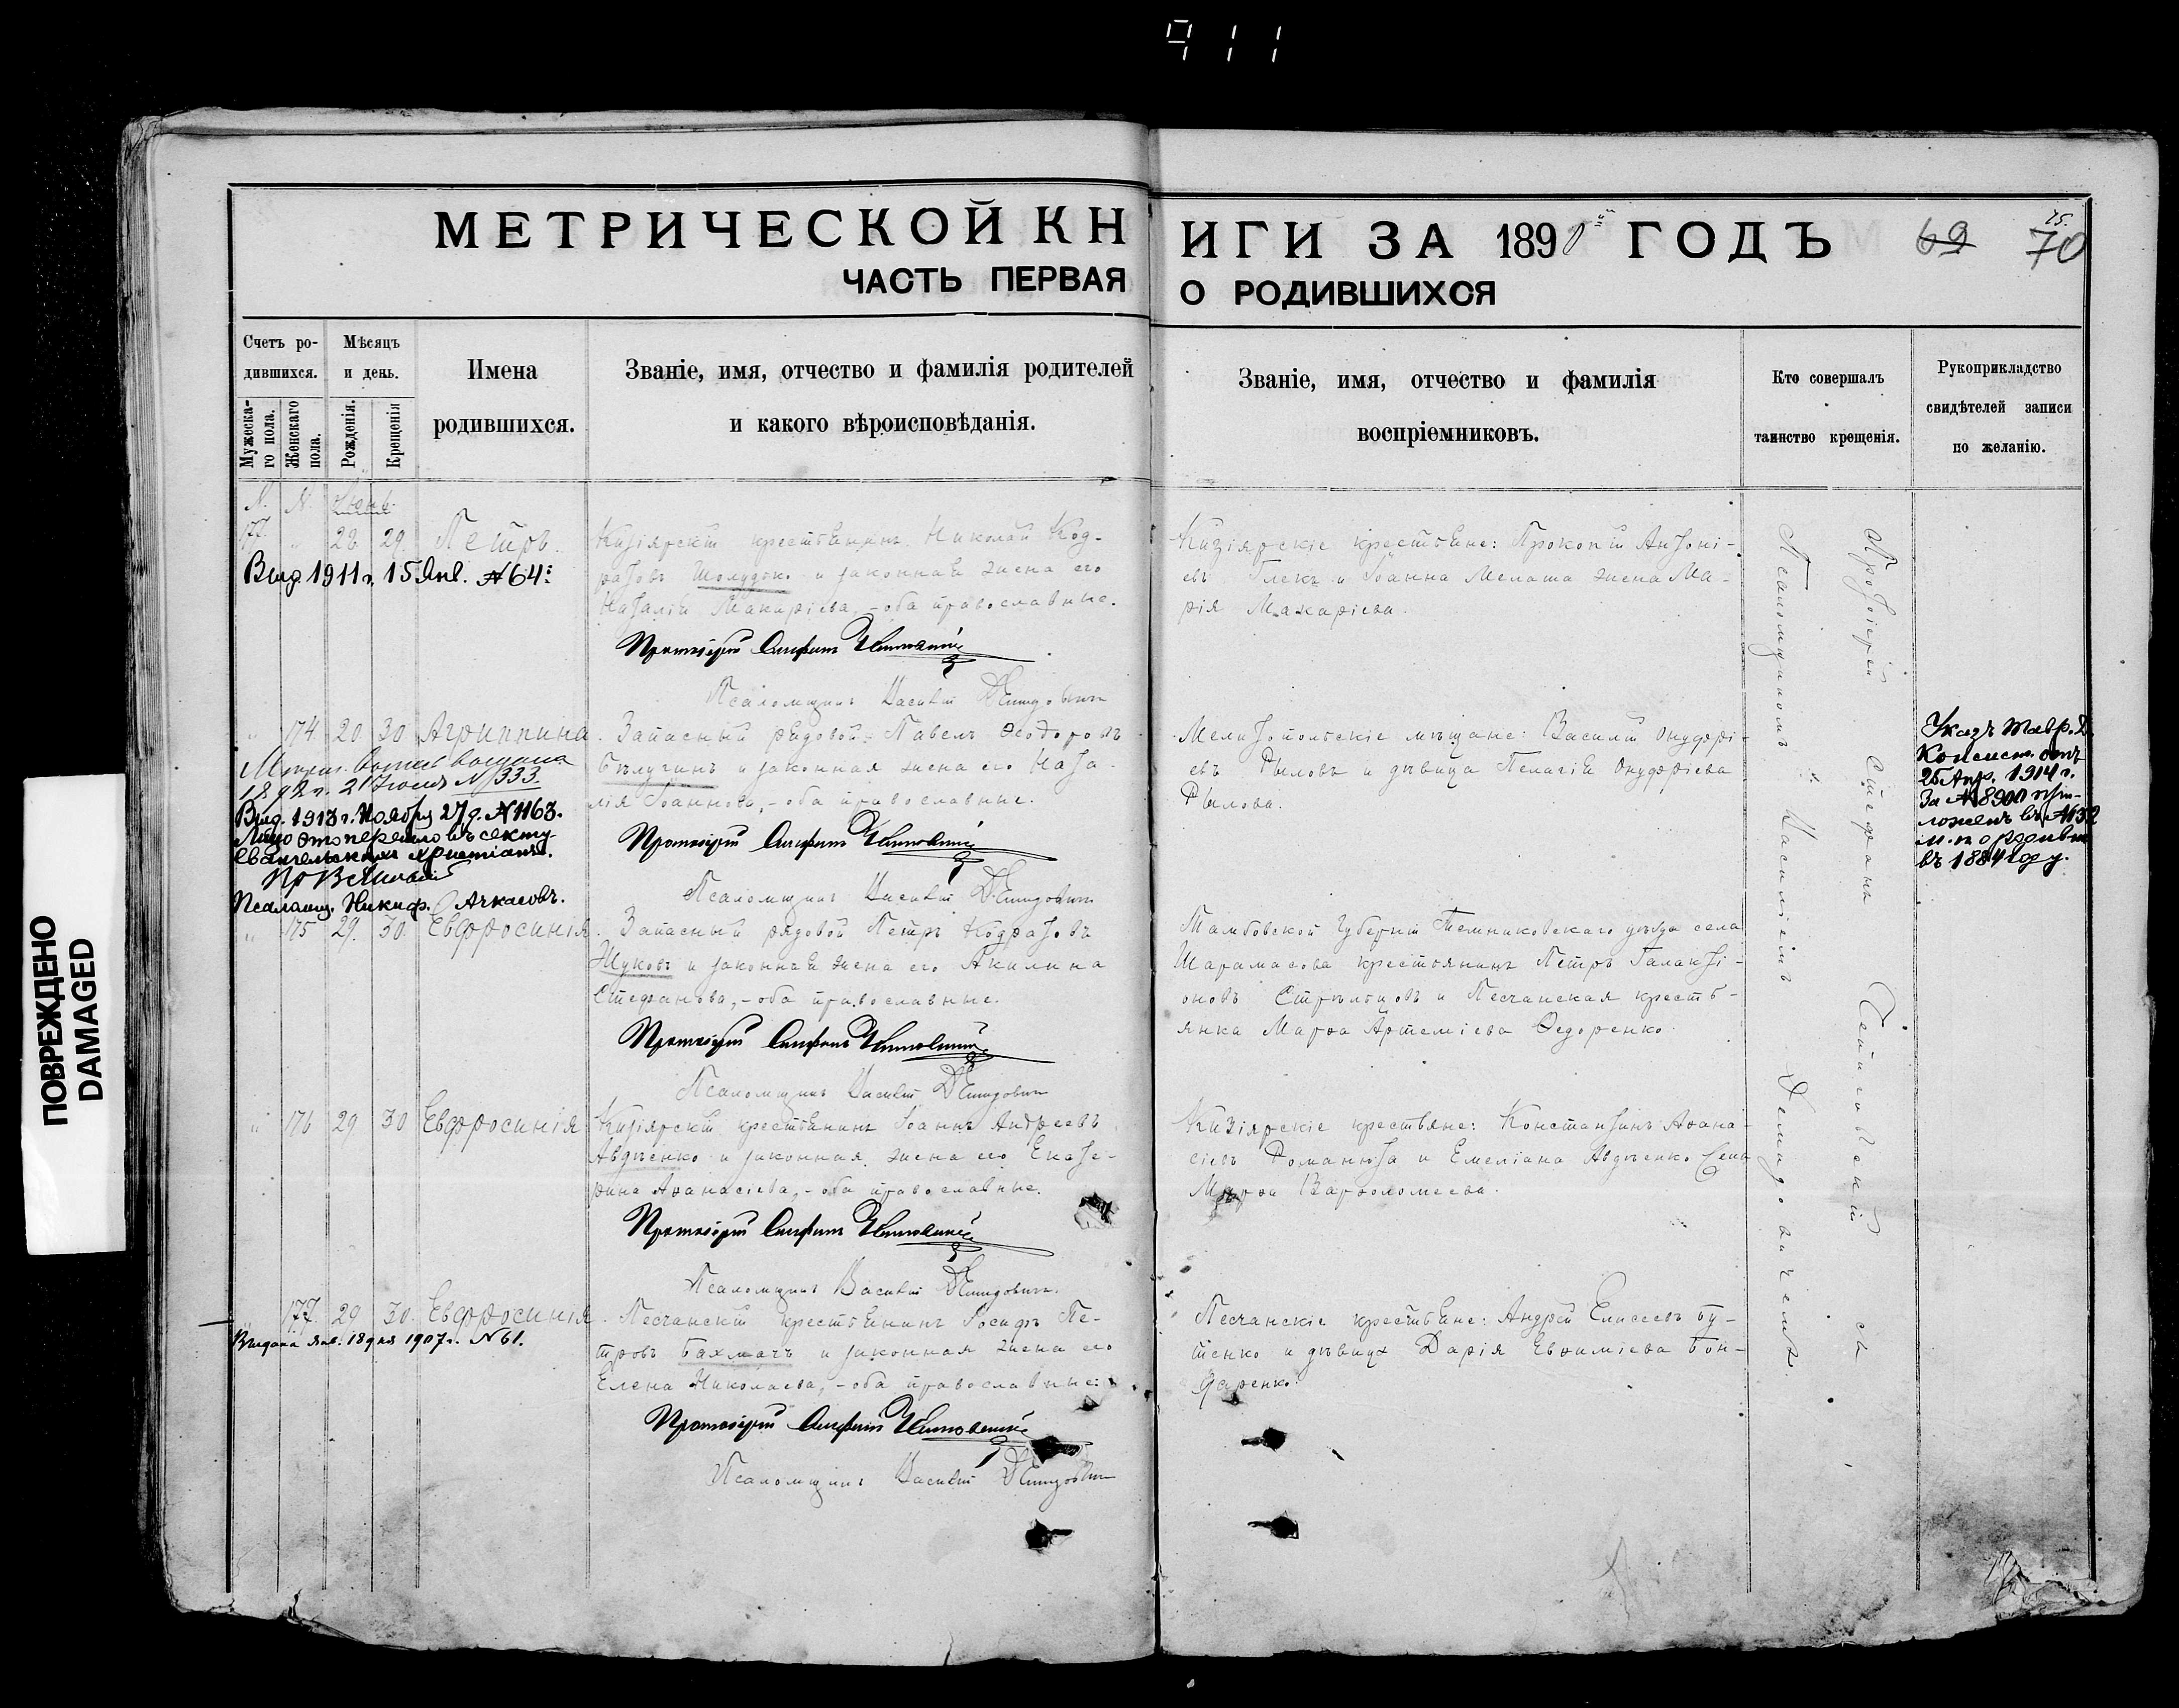 911
МЕТРИЧЕСКОЙ КНИГИ ЗА 1890й ГОДЪ
69 70
ЧАСТЬ ПЕРВАЯ О РОДИВШИХСЯ
Счетъ родившихся.
Мужескаго пола.
Женскаго пола.
Мѣсяцъ и день.
Рожденія.
Крещенія
Имена
родившихся.
Званіе, имя, отчество и фамилія родителей
и какого вѣроисповѣданія.
Званіе, имя, отчество и фамилія
воспріемниковъ.
Кто совершалъ
таинство крещенія.
Рукоприкладство
свидѣтелей записи
по желанію.
N. N.
177. 28 29 Петръ.
Выд. 1911 г. 15 Янв. № 64:
Кизіярскій крестьянинъ Николай Код-
ратовъ Шолудько и законная жена его
Наталія Макаріева, – оба православные.
Протоіерей Стефанъ
Псаломщикъ Василій Демидовичъ
Кизіярскіе крестьяне: Прокопій Антоні-
евъ Глекъ и Іоанна Мелаша жена Ма-
рія Макаріева.
" 174 20 30 Агриппина.
1892 г. 21 Іюня № 333.
Выд. 1913 г. Ноября 27 д. № 1163.
Лицо это перешло въ секту
Евангельскихъ христіанъ.
Псаломщ. Никиф. Ачкасовъ.
Запасный рядовой Павелъ Ѳеодоровъ
Бѣлугинъ и законная жена его Ната-
лія Іоаннова, – оба православные.
Протоіерей Стефанъ
Псаломщикъ Василій Демидовичъ
Мелитопольскіе мѣщане: Василій Онуфрі-
евъ Рыловъ и дѣвица Пелагія Онуфріева
Рылова.
Указъ Тавр. Д.
Консист. отъ
25 Апр. 1914 г.
За № 8900
въ № 132
въ 1884 году.
" 175 29 30 Евфросинія.
Запасный рядовой Петръ Кодратовъ
Жуковъ и законная жена его Акилина
Стефанова, – оба православные.
Протоіерей Стефанъ
Псаломщикъ Василій Демидовичъ
Тамбовской Губерніи Темниковскаго уѣзда села
Шарамасова крестьянинъ Петръ Галакті-
оновъ Стрѣльцовъ и Песчанская кресть-
янка Марѳа Артеміева Ѳедоренко.
" 176 29 30 Евфросинія
Кизіярскій крестьянинъ Іоаннъ Андреевъ
Авдѣенко и законная жена его Екате-
рина Аѳанасіева, – оба православные.
Протоіерей Стефанъ
Псаломщикъ Василій Демидовичъ.
Кизіярскіе крестьяне: Константинъ Аѳана-
сіевъ Романюта и Емеліана Авдѣенко жена
Марѳа Варѳоломеева.
177. 29 30. Евфросинія.
Выдана Янв. 18 дня 1907 г. № 61.
Песчанскій крестьянинъ Іосифъ Пе-
тровъ Бахмачъ и законная жена его
Елена Николаева, – оба православные.
Протоіерей Стефанъ
Псаломщикъ Василій Демидовичъ
Песчанскіе крестьяне: Андрей Елисеевъ Бу-
тенко и дѣвица Дарія Евѳиміева Бон-
даренко.
Протоіерей Стефанъ съ
Псаломщикомъ Василіемъ Демидовичемъ.
ПОВРЕЖДЕНО
DAMAGED